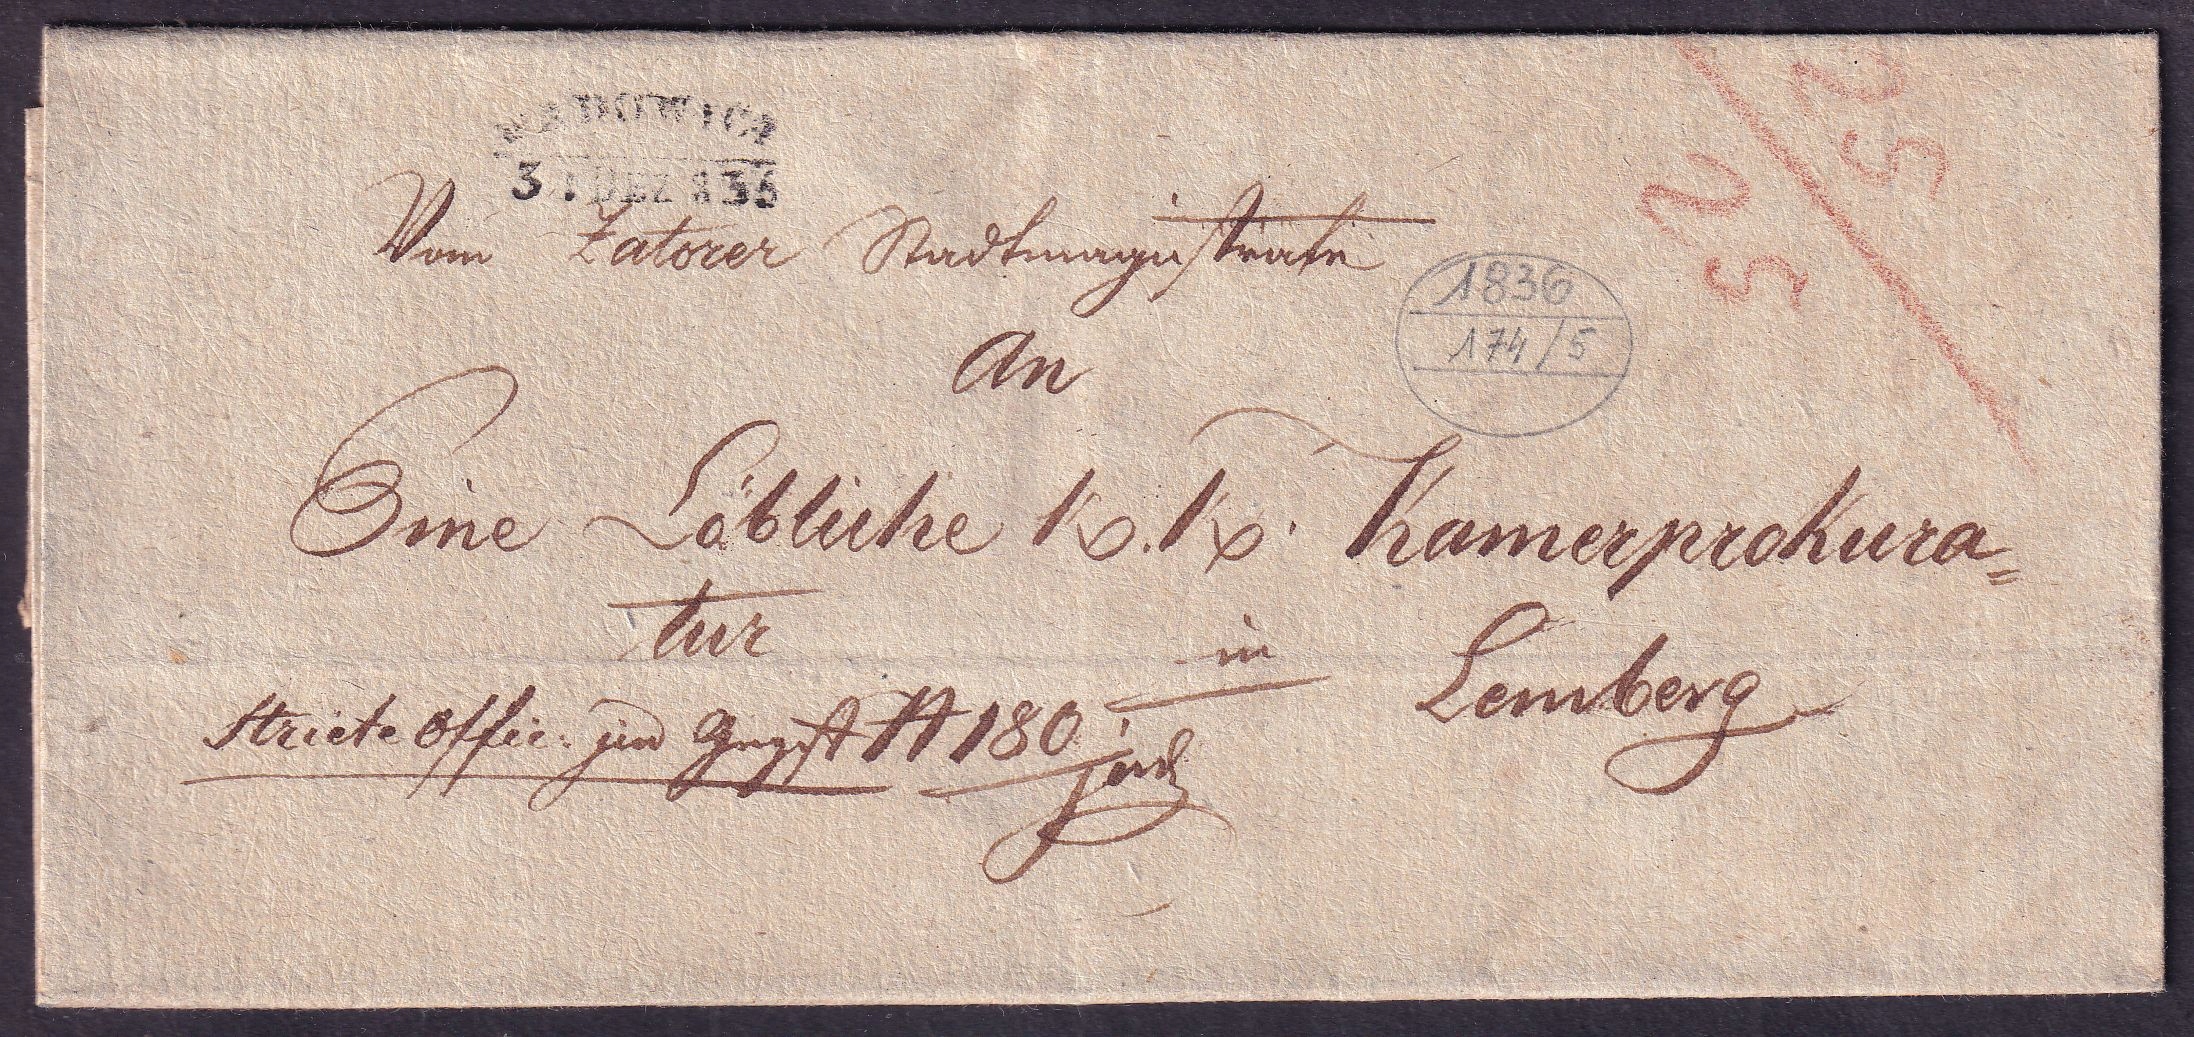 WADOWICE
3. DEZ 836
Vom Zatorer Stadtmagistrate
1836
174/5
An
Eine Löbliche K. K. Kamerprokura=
tur in Lemberg
Stricte Offic. 180